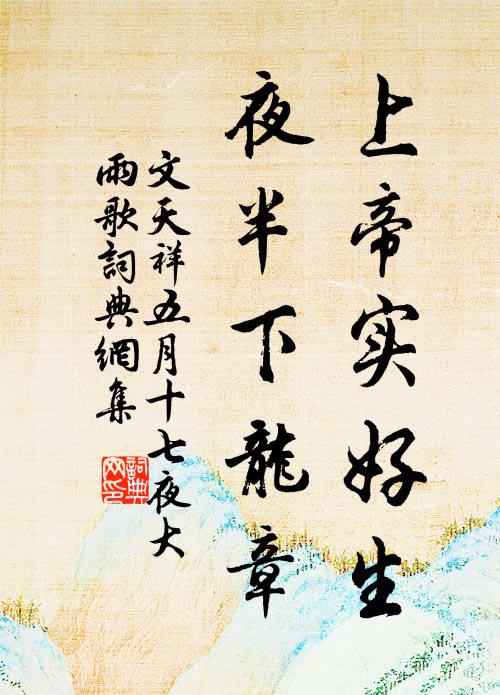 上帝实好生
夜半下龍章
文天祥五月十七夜大
雨歌詞典網集
詞典
网印